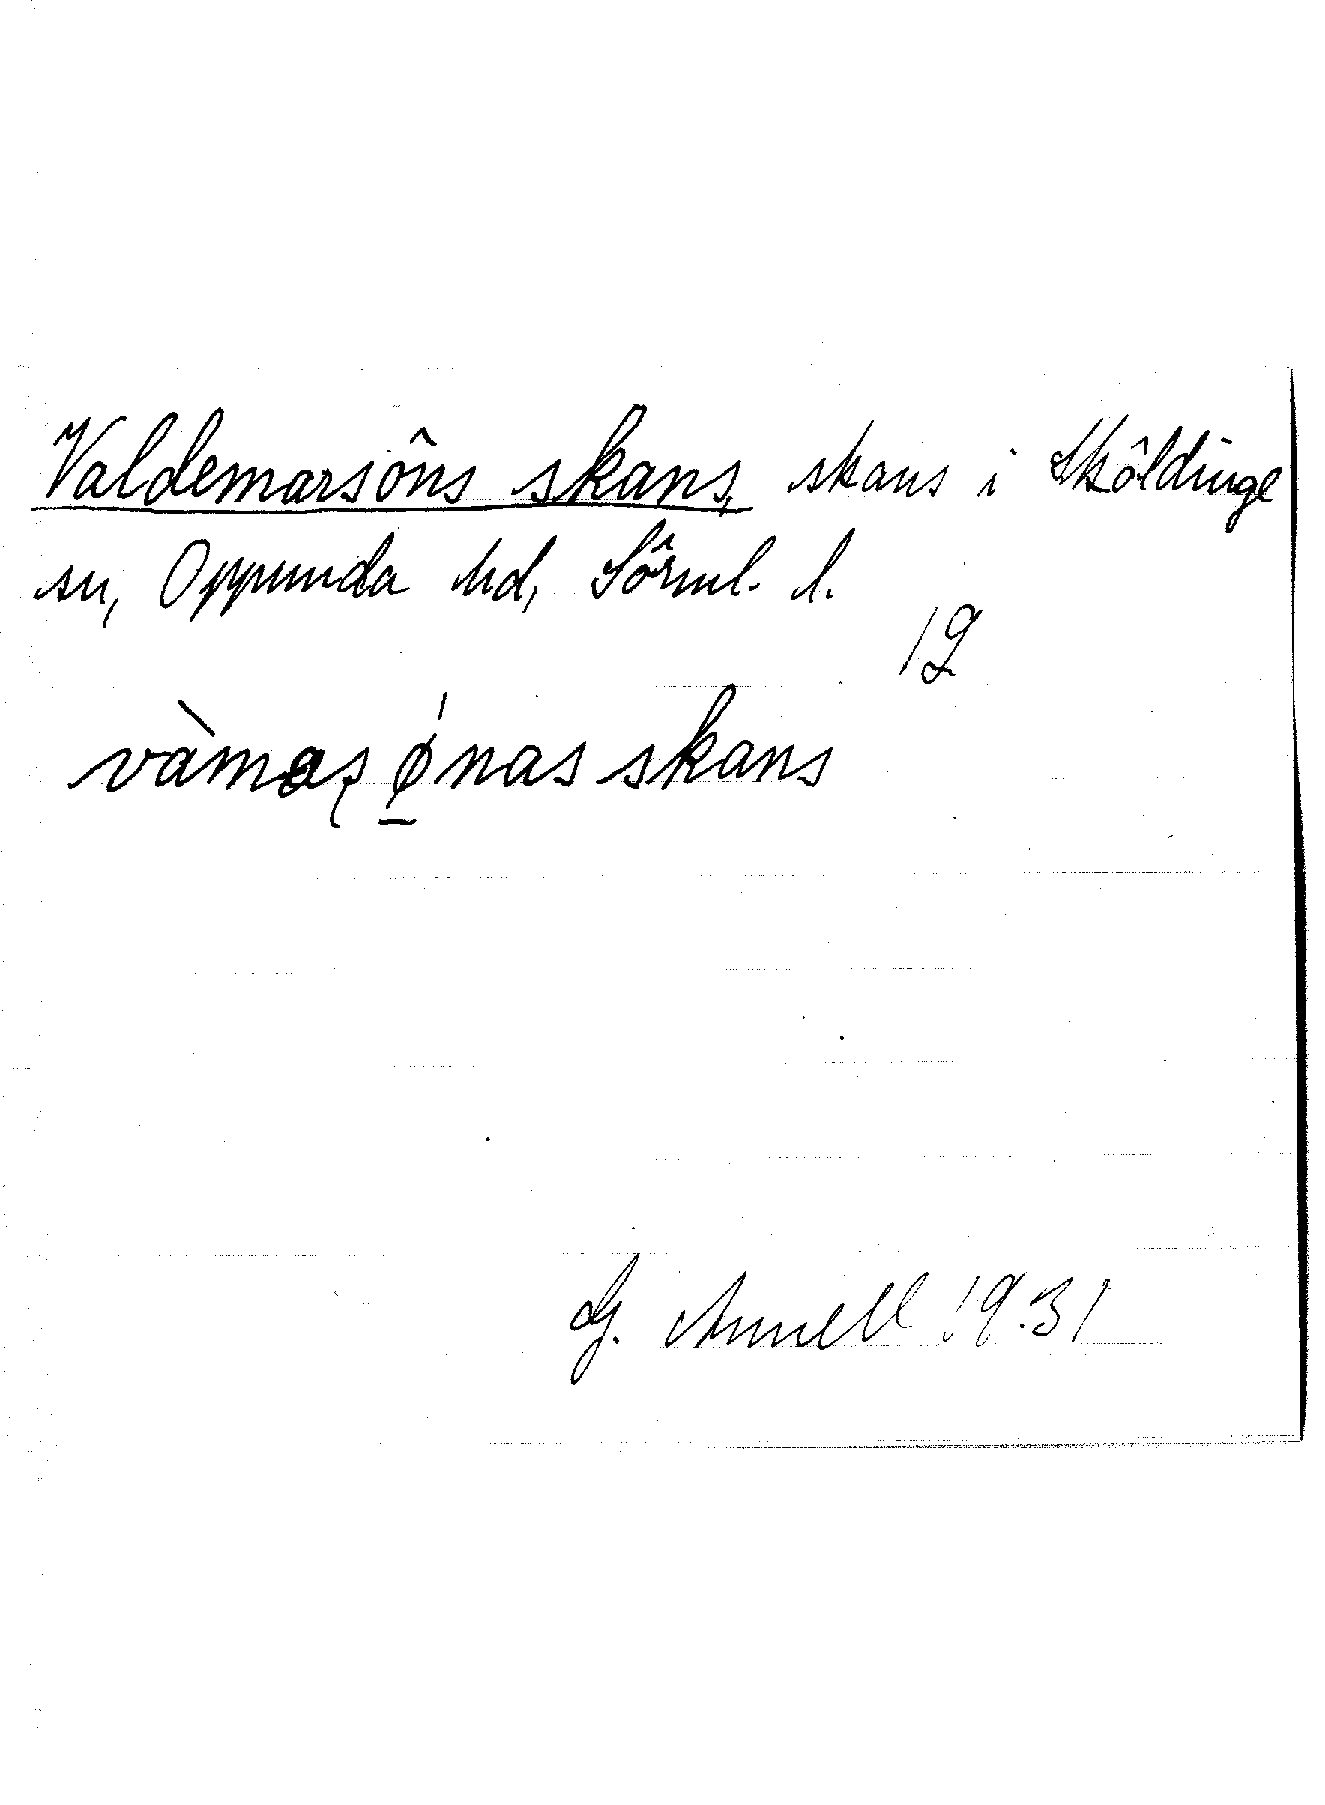 Valdemarsöns skans, skans i Sköldinge
sn, Oppunda hd, Sörml. l.
19
vàmaʂ ǿ̱nas skans
G. Annell 1931